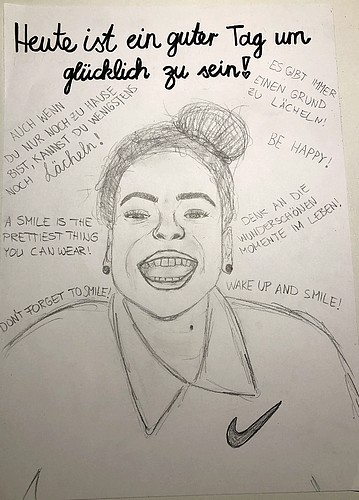 Heute ist ein guter Tag um
glücklich zu sein!
AUCH WENN
DU NUR NOCH ZU HAUSE
BIST, KANNST DU WENIGSTENS
NOCH Lächeln!
ES GIBT IMMER
EINEN GRUND
ZU LÄCHELN!
BE HAPPY!
A SMILE IS THE
PRETTIEST THING
YOU CAN WEAR!
DENK AN DIE
WUNDERSCHÖNEN
MOMENTE IM LEBEN!
DON'T FORGET TO SMILE!
WAKE UP AND SMILE!